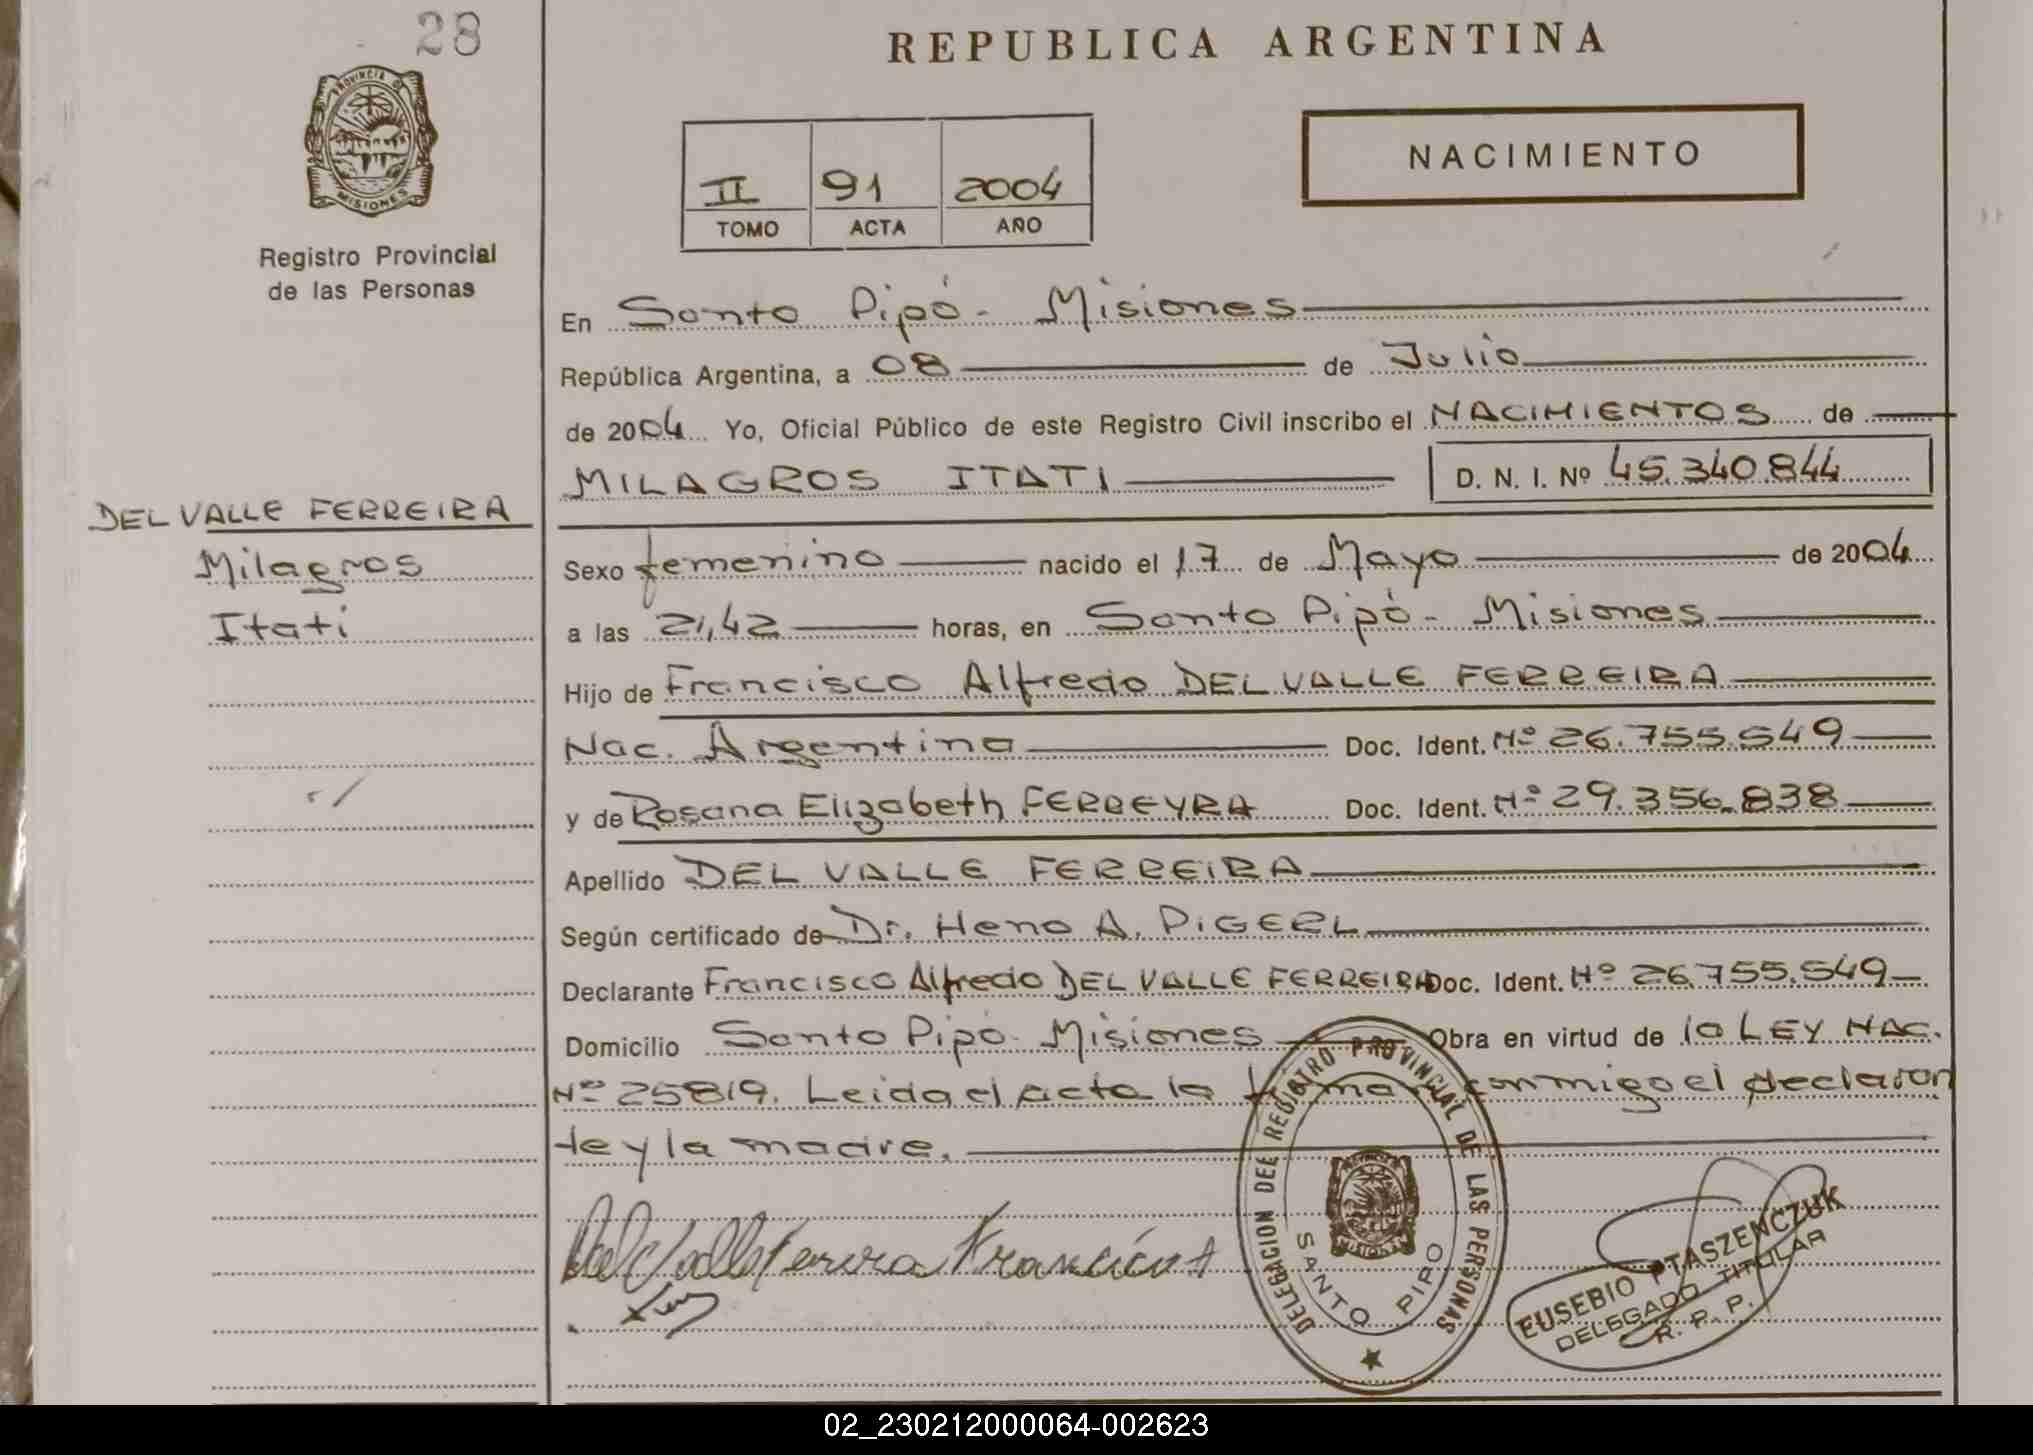 28
REPUBLICA ARGENTINA
PROVINCIA DE MISIONES
Registro Provincial
de las Personas
NACIMIENTO
II 91 2004
TOMO ACTA AÑO
En Santo Pipó - Misiones
República Argentina, a 08 de Julio
de 2004 Yo, Oficial Público de este Registro Civil inscribo el NACIMIENTOS de
MILAGROS ITATI D. N. I. Nº 45.340.844
DEL VALLE FERREIRA
Milagros
Itati
Sexo femenino nacido el 17 de Mayo de 2004
a las 21,42 horas, en Santo Pipó - Misiones
Hijo de Francisco Alfredo DEL VALLE FERREIRA
Nac. Argentina Doc. Ident. Nº 26.755.549
y de Rosana Elizabeth FERREYRA Doc. Ident. Nº 29.356.838
Apellido DEL VALLE FERREIRA
Según certificado de Dr. Heno A. PIGERL
Declarante Francisco Alfredo DEL VALLE FERREIRA Doc. Ident. Nº 26.755.549
Domicilio Santo Pipó - Misiones Obra en virtud de la LEY NAC.
Nº 25819. Leida el acta la firman conmigo el declaran
te y la madre.
Del Valle Ferreira Francisco A
DELEGACION DEL REGISTRO PROVINCIAL DE LAS PERSONAS
MISIONES
SANTO PIPO
EUSEBIO PTASZENCZUK
DELEGADO TITULAR
R. P. P.
02_230212000064-002623